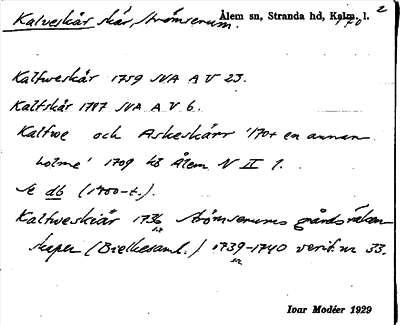 Kalveskär skär, Strömserum. Ålem sn, Stranda hd, Kalm. l. 2
Kalfweskär 1759 SVA A V 23.
Kalfskär 1787 SVA A V 6.
Kalfwe och Askeskärr '170+ en annan
holme' 1709 Ålem N II 1.
Se db (1900-t.).
Kalfweskiär 1736 Strömserums gårdsräken
skaper (Bielkesaml.) 1739-1740 verif. nr 33.
Ivar Modéer 1929